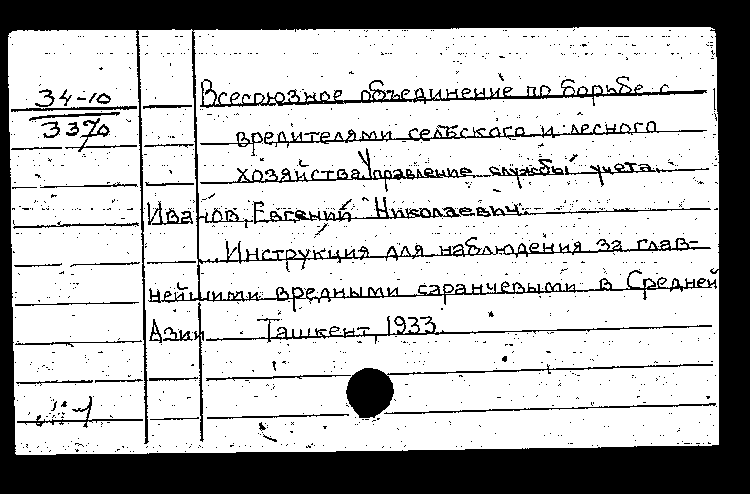 34-10
3370
Всесоюзное объединение по борьбе с
вредителями сельского и лесного
хозяйства Управление службы учета.
Иванов, Евгений Николаевич.
Инструкция для наблюдения за глав-
нейшими вредными саранчевыми в Средней
Азии Ташкент, 1933.